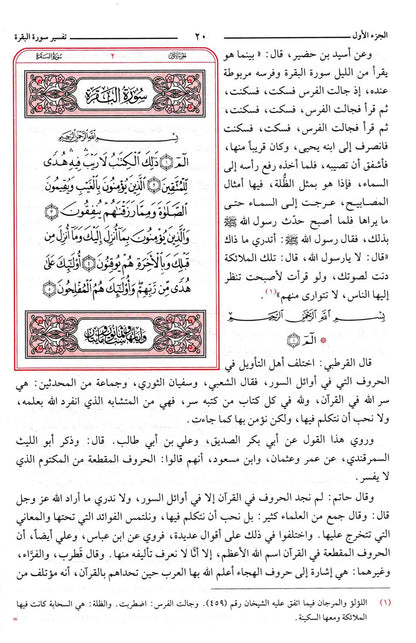 الجزء الأول
٢٠
تفسير سورة البقرة
وعن أسيد بن حضير، قال: «بينما هو
يقرأ من الليل سورة البقرة وفرسه مربوطة
عنده، إذ جالت الفرس، فسكت، فسكنت،
ثم قرأ فجالت الفرس، فسكت، فسكنت،
ثم قرأ فجالت الفرس، فسكت، فسكنت،
فانصرف إلى ابنه يحيى، وكان قريباً منها،
فأشفق أن تصيبه، فلما أخذه رفع رأسه إلى
السماء، فإذا هو بمثل الظُّلة، فيها أمثال
المصابيح، عرجت إلى السماء حتى
ما يراها فلما أصبح حدّث رسول الله ﷺ
بذلك، فقال رسول الله ﷺ: أتدري ما ذاك
«قال: لا يارسول الله، قال: تلك الملائكة
دنت لصوتك، ولو قرأت لأصبحت تنظر
إليها الناس، لا تتوارى منهم»(١).
بسم الله الرحمن الرحيم
* الٓمٓ ١
٢
سورة البقرة
بسم الله الرحمن الرحيم
الٓمٓ ١ ذَٰلِكَ ٱلْكِتَٰبُ لَا رَيْبَ فِيهِ هُدًى
لِّلْمُتَّقِينَ ٢ ٱلَّذِينَ يُؤْمِنُونَ بِٱلْغَيْبِ وَيُقِيمُونَ
ٱلصَّلَوٰةَ وَمِمَّا رَزَقْنَٰهُمْ يُنفِقُونَ ٣
وَٱلَّذِينَ يُؤْمِنُونَ بِمَآ أُنزِلَ إِلَيْكَ وَمَآ أُنزِلَ مِن
قَبْلِكَ وَبِٱلْأَخِرَةِ هُمْ يُوقِنُونَ ٤ أُو۟لَٰٓئِكَ عَلَىٰ
هُدًى مِّن رَّبِّهِمْ وَأُو۟لَٰٓئِكَ هُمُ ٱلْمُفْلِحُونَ ٥
قال القرطبي: اختلف أهل التأويل في
الحروف التي في أوائل السور، فقال الشعبي، وسفيان الثوري، وجماعة من المحدثين: هي
سر الله في القرآن، ولله في كل كتاب من كتبه سر، فهي من المتشابه الذي انفرد الله بعلمه،
ولا نحب أن نتكلم فيها، ولكن نؤمن بها كما جاءت.
وروي هذا القول عن أبي بكر الصديق، وعلي بن أبي طالب. قال: وذكر أبو الليث
السمرقندي، عن عمر وعثمان، وابن مسعود، أنهم قالوا: الحروف المقطعة من المكتوم الذي
لا يفسر.
وقال حاتم: لم نجد الحروف في القرآن إلا في أوائل السور، ولا ندري ما أراد الله عز وجل
بها. قال: وقال جمع من العلماء كثير: بل نحب أن نتكلم فيها، ونلتمس الفوائد التي تحتها والمعاني
التي تتخرج عليها. واختلفوا في ذلك على أقوال عديدة، فروي عن ابن عباس، وعلي أيضاً، أن
الحروف المقطعة في القرآن اسم الله الأعظم، إلا أنَّا لا نعرف تأليفه منها. وقال قُطرب، والفرَّاء،
وغيرهما: هي إشارة إلى حروف الهجاء أعلم الله بها العرب حين تحداهم بالقرآن، أنه مؤتلف من
(١) اللؤلؤ والمرجان فيما اتفق عليه الشيخان رقم (٤٥٩). وجالت الفرس: اضطربت. والظلة: هي السحابة كانت فيها
الملائكة ومعها السكينة.